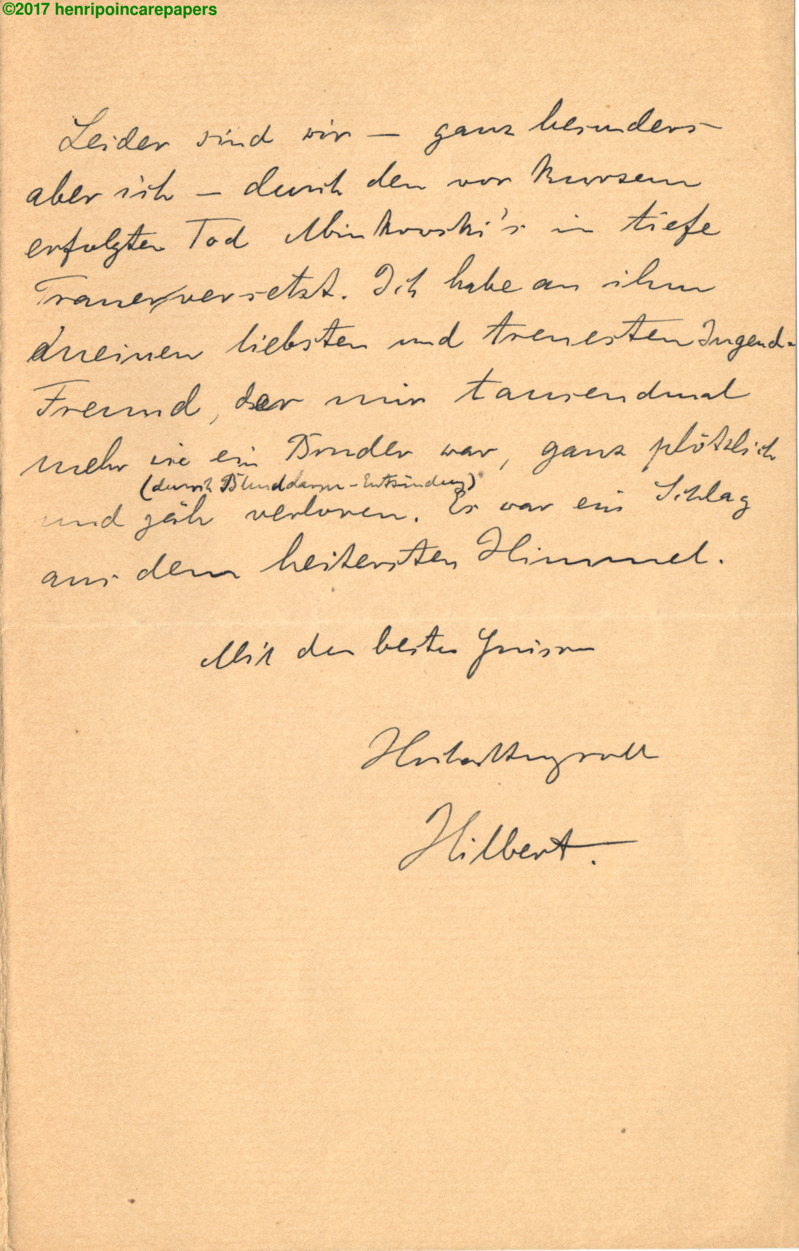 ©2017 henripoincarepapers
Leider sind wir — ganz besonders
aber ich — durch den vor Kurzem
erfolgten Tod Minkowski's in tiefe
Trauer versetzt. Ich habe an ihm
meinen liebsten und treuesten Jugend-
Freund, der mir tausendmal
mehr wie ein Bruder war, ganz plötzlich
(durch Blinddarm-Entzündung)
und jäh verloren. Es war ein Schlag
aus dem heitersten Himmel.
Mit den besten Grüssen
Hochachtungsvoll
Hilbert.